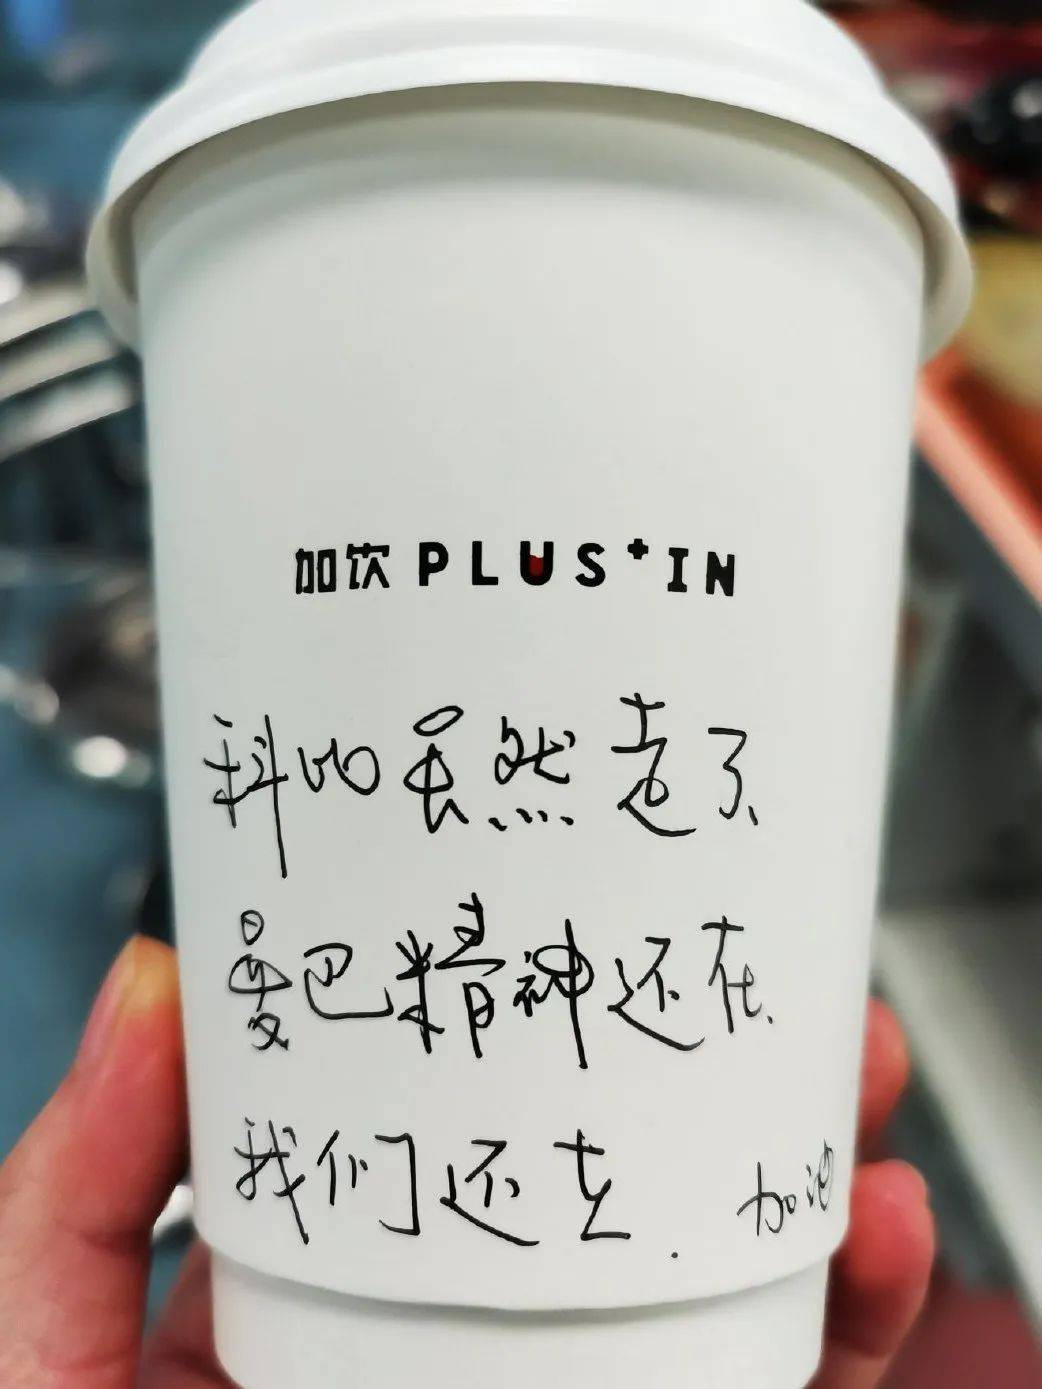 加饮 PLUS+IN
科比虽然走了
曼巴精神还在
我们还在.
加油